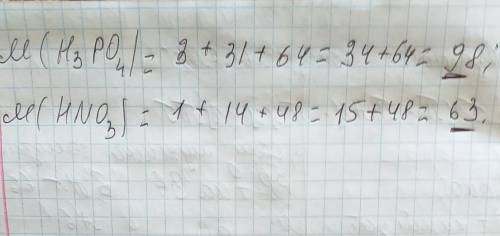 M(H₃PO₄) = 3 + 31 + 64 = 34+64= 98;
M(HNO₃) = 1 + 14 + 48 = 15 + 48 = 63.